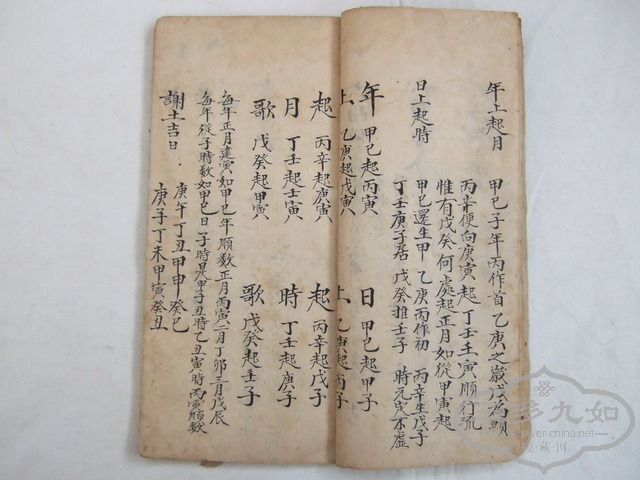 年上起月
甲己子年丙作首 乙庚之歲戊為頭
丙辛便向庚寅起 丁壬壬寅順行流
惟有戊癸何處起 正月如從甲寅起
日上起時
甲己還生甲 乙庚丙作初 丙辛生戊子
丁壬庚子居 戊癸推壬子 時元定不虛
年 甲己起丙寅 日 甲己起甲子
上 乙庚起戊寅 上 乙庚起丙子
起 丙辛起庚寅 起 丙辛起戊子
月 丁壬起壬寅 時 丁壬起庚子
歌 戊癸起甲寅 歌 戊癸起壬子
每年正月建寅如甲己年順數正月丙寅二月丁卯三月戊辰
每年從子時數如甲己日子時是甲子丑時乙丑寅時丙寅順數
謝土吉日
庚午丁丑甲申癸巳
庚子丁未甲寅癸丑
九如